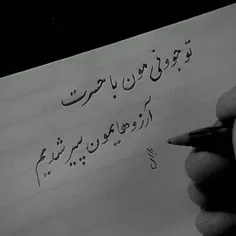 تو جوونی هون با حسرت
آرزوهایمون پیر شدیم